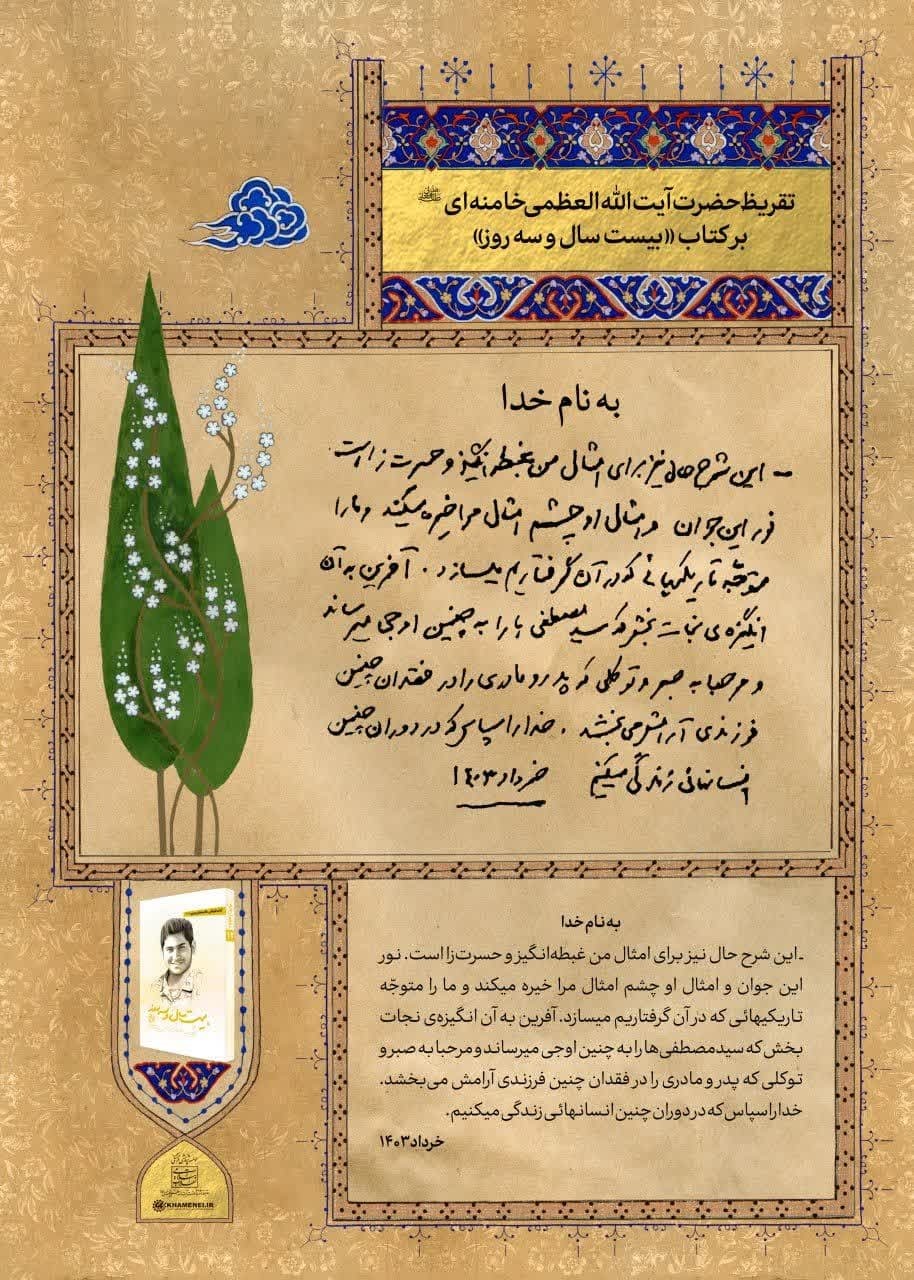 تقریظ حضرت آیت الله العظمی خامنه‌ای
بر کتاب ((بیست سال و سه روز))
به نام خدا
- این شرح حال نیز برای امثال من غبطه‌انگیز و حسرت‌زا است.
نور این جوان و امثال او چشم امثال مرا خیره میکند و ما را
متوجّه تاریکیهائی که در آن گرفتاریم میسازد. آفرین به آن
انگیزه‌ی نجات بخش که سیدمصطفی‌ها را به چنین اوجی میرساند
و مرحبا به صبر و توکلی که پدر و مادری را در فقدان چنین
فرزندی آرامش می‌بخشد. خدا را سپاس که در دوران چنین
انسانهائی زندگی میکنیم خرداد ۱۴۰۳
به نام خدا
ـ این شرح حال نیز برای امثال من غبطه‌انگیز و حسرت‌زا است. نور
این جوان و امثال او چشم امثال مرا خیره میکند و ما را متوجّه
تاریکیهائی که در آن گرفتاریم میسازد. آفرین به آن انگیزه‌ی نجات
بخش که سیدمصطفی‌ها را به چنین اوجی میرساند و مرحبا به صبر و
توکلی که پدر و مادری را در فقدان چنین فرزندی آرامش می‌بخشد.
خدا را سپاس که در دوران چنین انسانهائی زندگی میکنیم.
خرداد ۱۴۰۳
KHAMENEI.IR